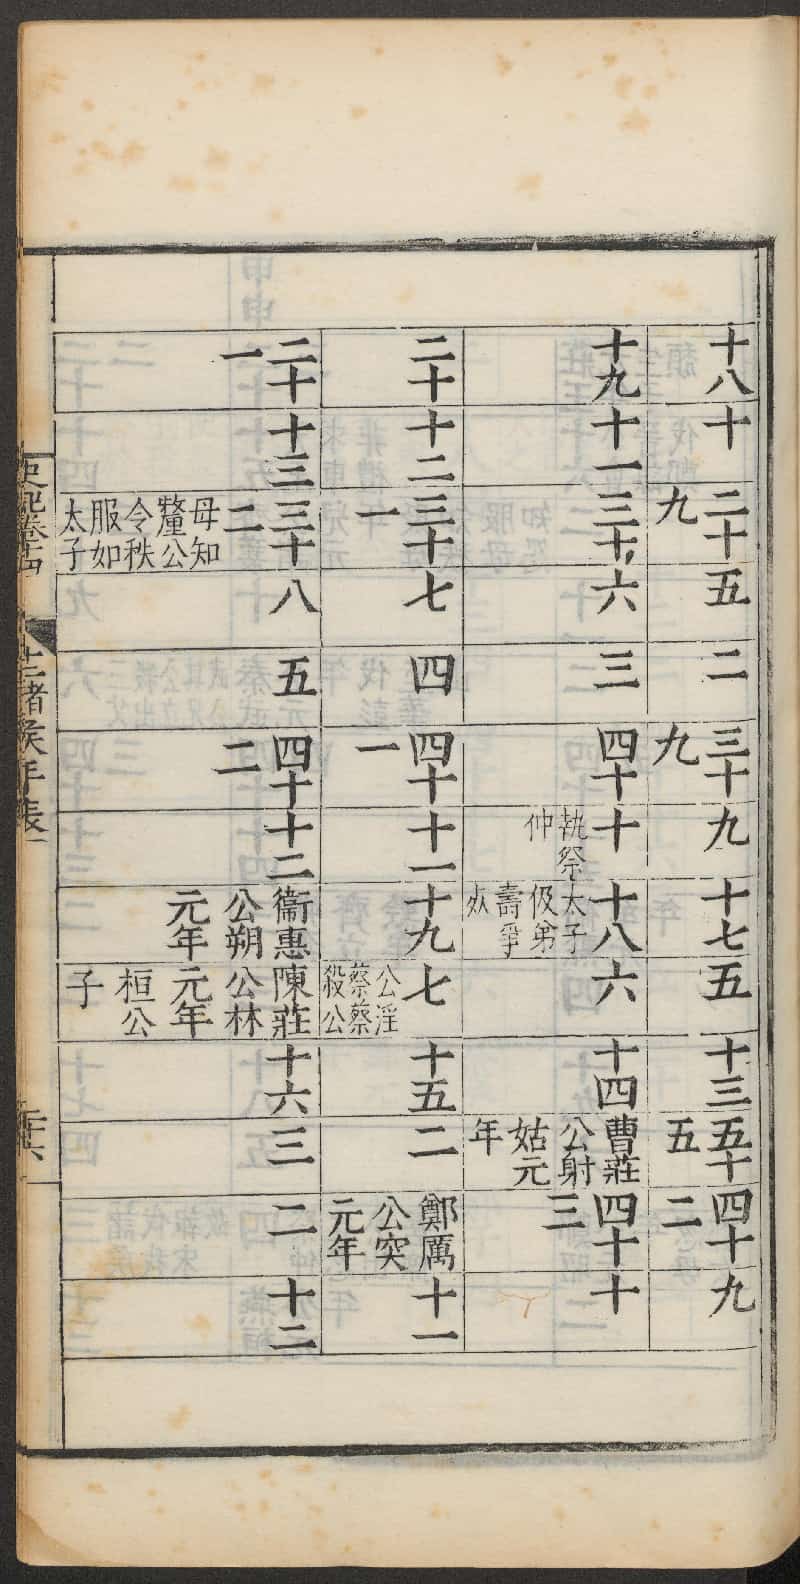 十八
十
二十九
五
二
三十九
九
十七
五
十三
五十五
四十二
九
十九
十一
三十
六
三
四十
十 執祭仲
十八 太子伋弟壽爭死
六
十四
曹莊公射姑元年
四十三
十
二十
十二
三十一
七
四
四十一
十一
十九
七 公淫蔡蔡殺公
十五
二
鄭厲公突元年
十一
二十一
十三
三十二 母知釐公令秩服如太子
八
五
四十二
十二
衞惠公朔元年
陳莊公林元年 桓公子
十六
三
二
十二
史記卷十四
諸侯年表